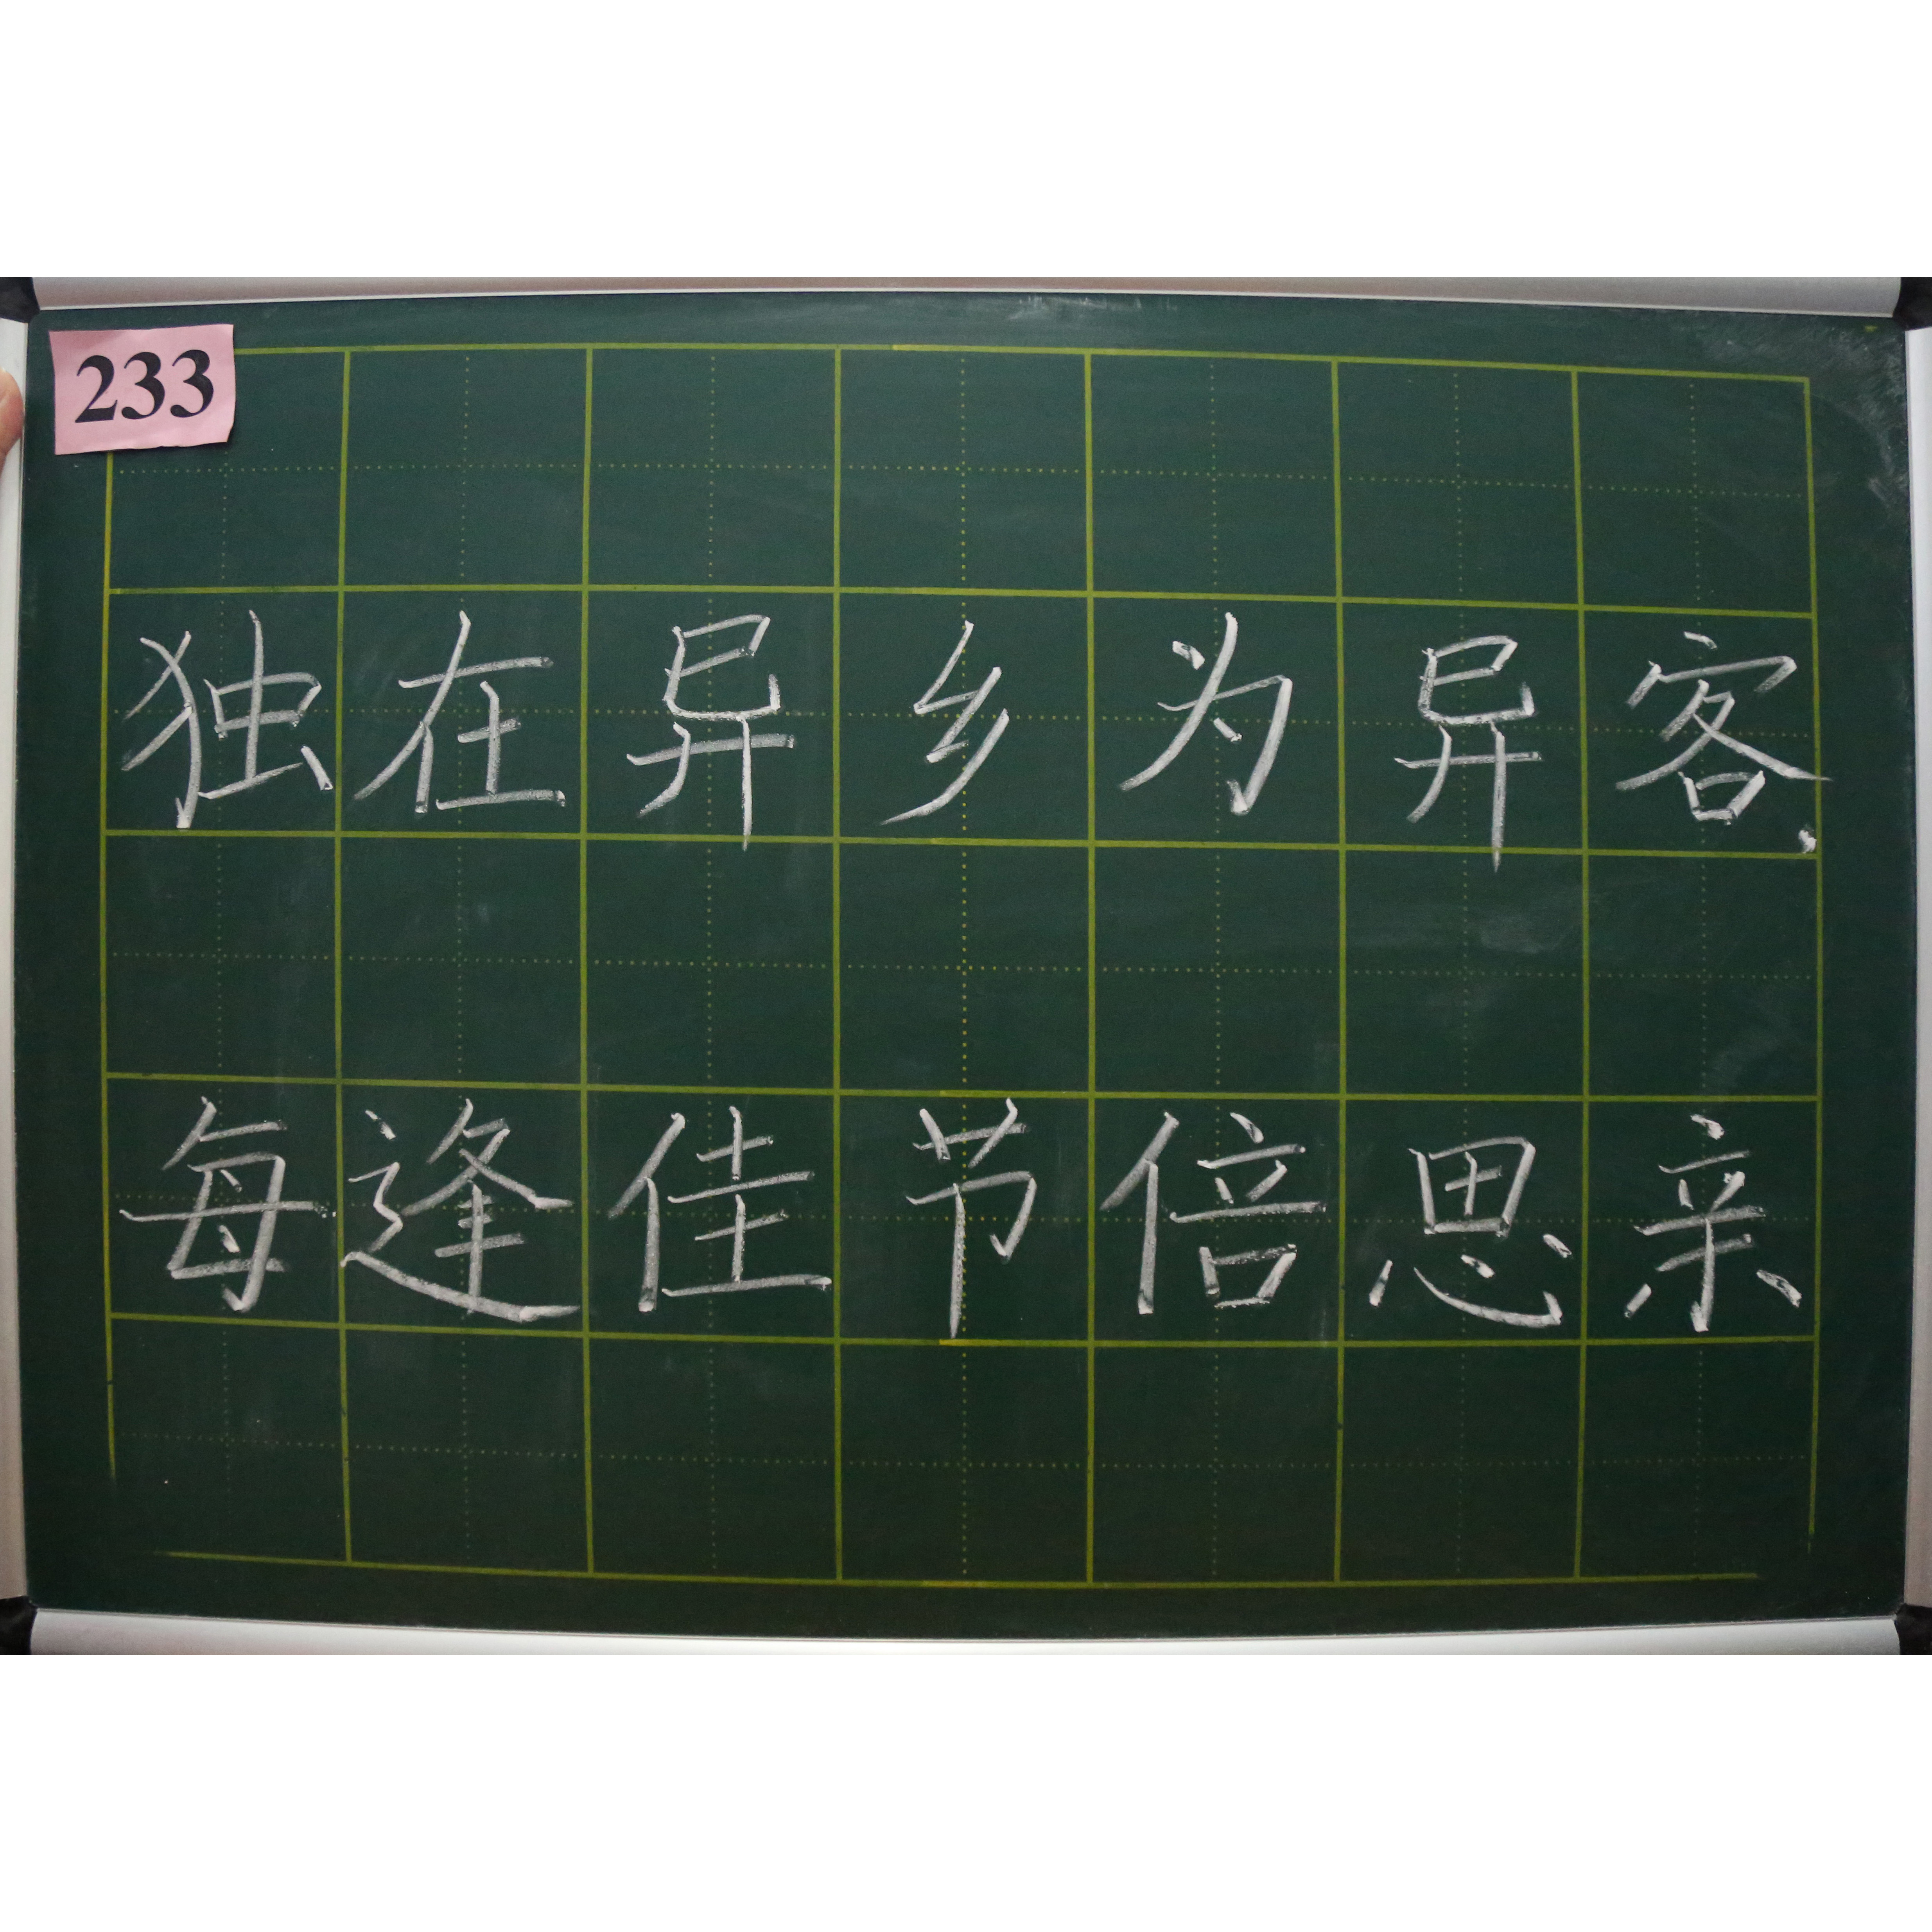 233
独在异乡为异客，
每逢佳节倍思亲